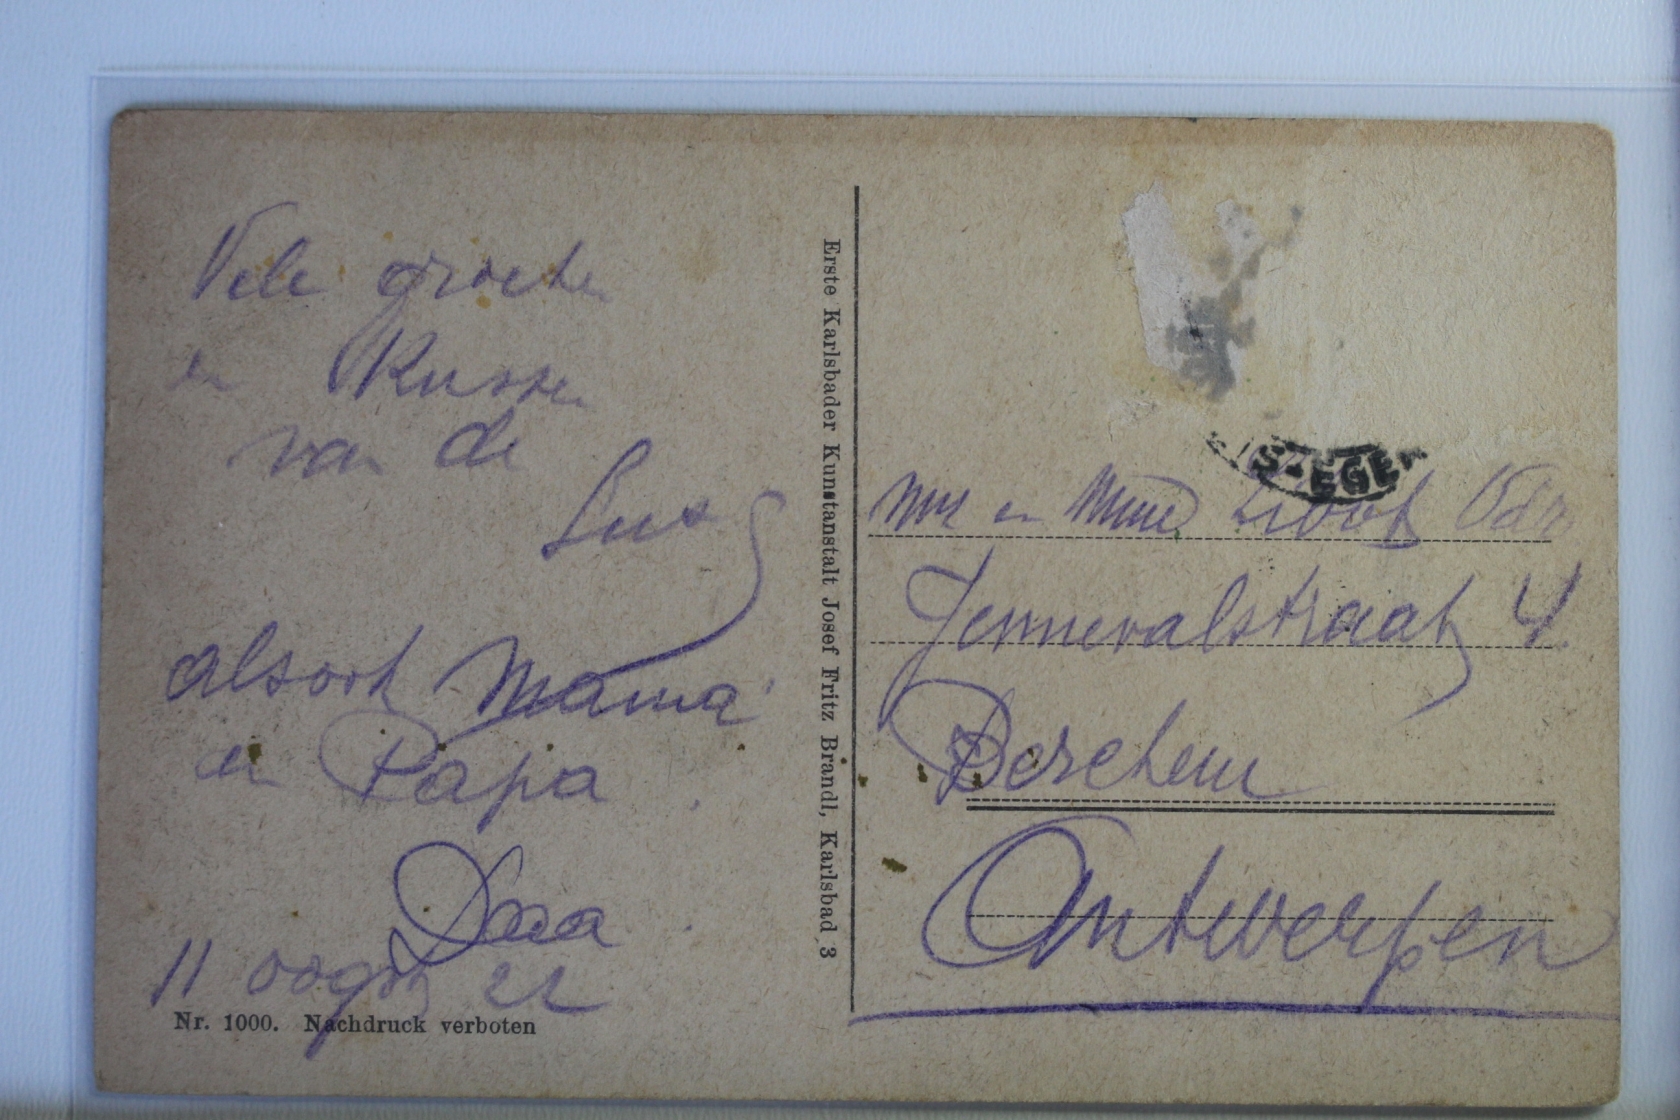 Vele groeten
en Kussen
van de
Lus
alsook Mama
en Papa
11 oogst 22
Nr. 1000. Nachdruck verboten
Erste Karlsbader Kunstanstalt Josef Fritz Brandl, Karlsbad 3
S-EGER
en
Jennevalstraat 4
Berchem
Antwerpen